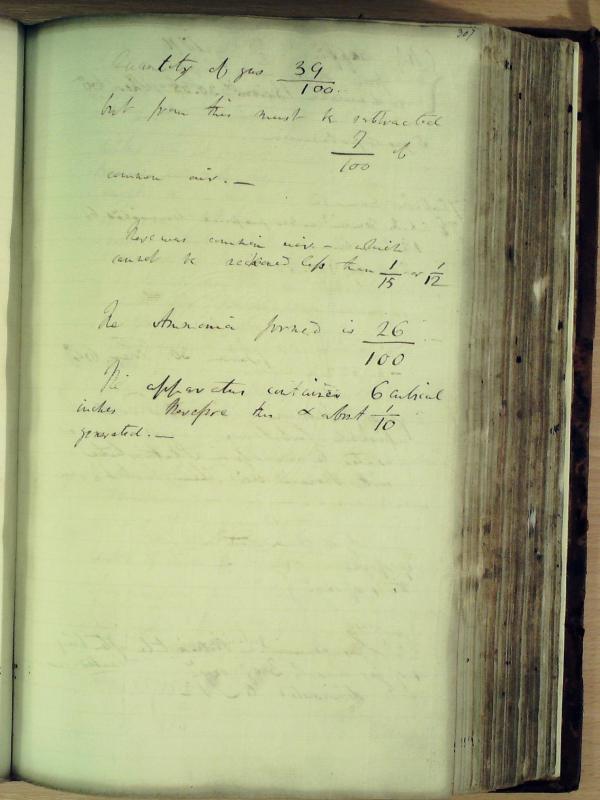 307
Quantity of gas 39/100.
but from this must be subtracted
7/100 of
common air. —
There was common air – which
cannot be reckoned less than 1/15 or 1/12
The Ammonia formed is 26/100
The apparatus contained 6 cubical
inches Therefore this & about 1/10
generated. —